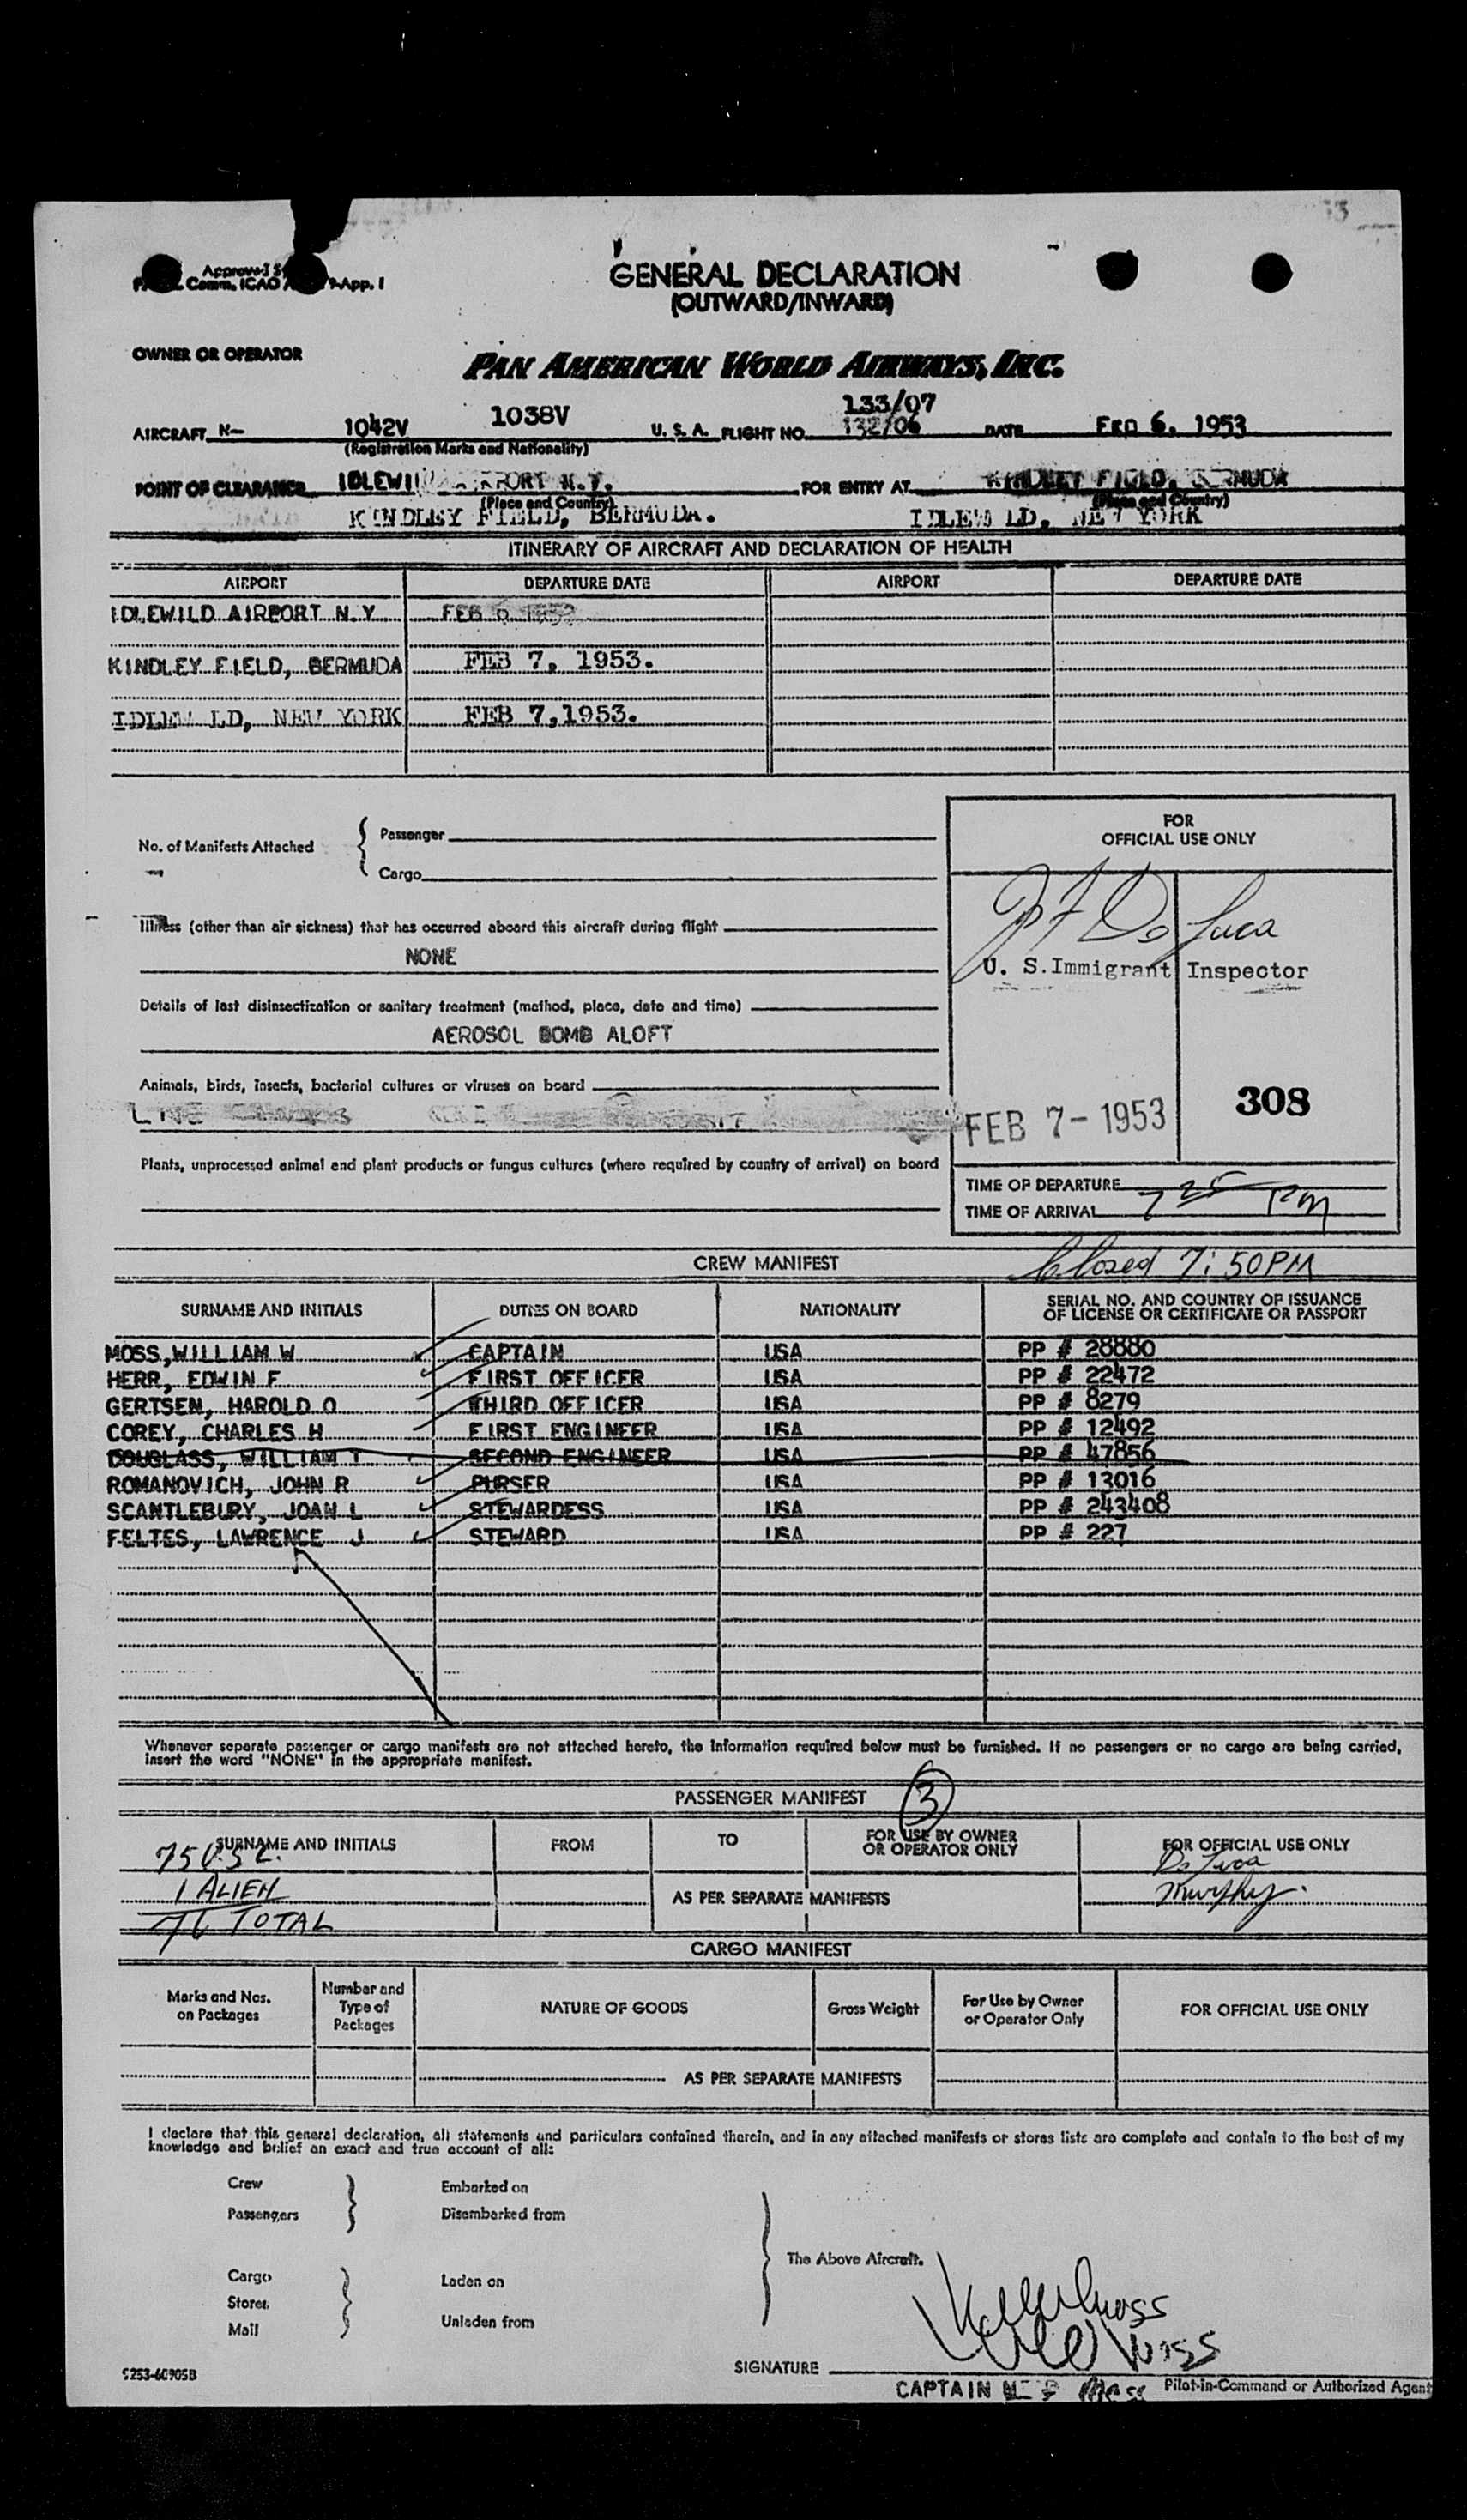 GENERAL DECLARATION
(OUTWARD/INWARD)
Comm. ICAO 9-App. 1
OWNER OR OPERATOR PAN AMERICAN WORLD AIRWAYS, INC.
1038V 133/07
AIRCRAFT N- 1042V U. S. A. FLIGHT NO. 132/06 DATE 6, 1953
(Registration Marks and Nationality)
POINT OF CLEARANCE N.Y. FOR ENTRY AT KINDLEY FIELD, BERMUDA
(Place and Country) (Place and Country)
KINDLEY FIELD, BERMUDA. IDLEW LD, NEW YORK
ITINERARY OF AIRCRAFT AND DECLARATION OF HEALTH
AIRPORT DEPARTURE DATE AIRPORT DEPARTURE DATE
IDLEWILD AIRPORT N.Y FEB 6
KINDLEY FIELD, BERMUDA FEB 7, 1953.
IDLEW LD, NEW YORK FEB 7,1953.
No. of Manifests Attached { Passenger
Cargo
FOR
OFFICIAL USE ONLY
Illness (other than air sickness) that has occurred aboard this aircraft during flight
NONE
De Luca
U. S.Immigrant Inspector
Details of last disinsectization or sanitary treatment (method, place, date and time)
AEROSOL BOMB ALOFT
Animals, birds, insects, bacterial cultures or viruses on board
308
FEB 7- 1953
Plants, unprocessed animal and plant products or fungus cultures (where required by country of arrival) on board
TIME OF DEPARTURE
TIME OF ARRIVAL 7 25 PM
CREW MANIFEST Closed 7:50PM
SURNAME AND INITIALS DUTIES ON BOARD NATIONALITY SERIAL NO. AND COUNTRY OF ISSUANCE
OF LICENSE OR CERTIFICATE OR PASSPORT
MOSS,WILLIAM W CAPTAIN USA PP # 28880
HERR, EDWIN F FIRST OFFICER USA PP # 22472
GERTSEN, HAROLD O THIRD OFFICER USA PP # 8279
COREY, CHARLES H FIRST ENGINEER USA PP # 12492
DOUGLASS, WILLIAM T SECOND ENGINEER USA PP # 47856
ROMANOVICH, JOHN R PURSER USA PP # 13016
SCANTLEBURY, JOAN L STEWARDESS USA PP # 243408
FELTES, LAWRENCE J STEWARD USA PP # 227
Whenever separate passenger or cargo manifests are not attached hereto, the information required below must be furnished. If no passengers or no cargo are being carried,
insert the word "NONE" in the appropriate manifest.
PASSENGER MANIFEST 3
SURNAME AND INITIALS FROM TO FOR USE BY OWNER
OR OPERATOR ONLY FOR OFFICIAL USE ONLY
75 USC. De Luca
1 ALIEN AS PER SEPARATE MANIFESTS Murphy.
76 TOTAL
CARGO MANIFEST
Marks and Nos.
on Packages Number and
Type of
Packages NATURE OF GOODS Gross Weight For Use by Owner
or Operator Only FOR OFFICIAL USE ONLY
AS PER SEPARATE MANIFESTS
I declare that this general declaration, all statements and particulars contained therein, and in any attached manifests or stores lists are complete and contain to the best of my
knowledge and belief an exact and true account of all:
Crew Embarked on
Passengers Disembarked from
The Above Aircraft.
Cargo Laden on
Stores
Mail Unladen from
SIGNATURE
CAPTAIN Moss Pilot-in-Command or Authorized Agent
S253-60905B